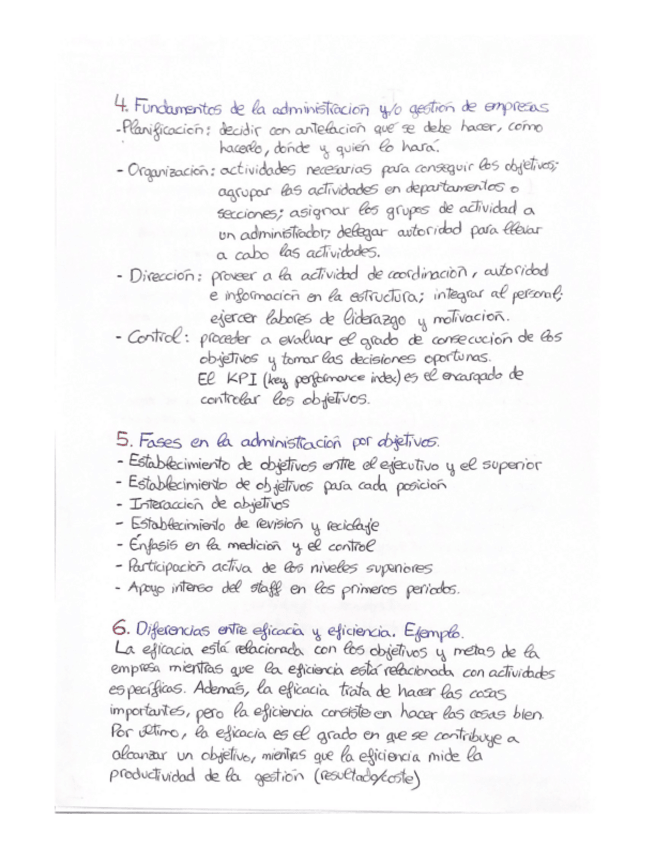 4. Fundamentos de la administración y/o gestión de empresas
-Planificación: decidir con antelación qué se debe hacer, cómo
hacerlo, dónde y quién lo hará.
- Organización: actividades necesarias para conseguir los objetivos;
agrupar las actividades en departamentos o
secciones; asignar los grupos de actividad a
un administrador; delegar autoridad para llevar
a cabo las actividades.
- Dirección: proveer a la actividad de coordinación, autoridad
e información en la estructura; integrar al personal;
ejercer labores de liderazgo y motivación.
- Control: proceder a evaluar el grado de consecución de los
objetivos y tomar las decisiones oportunas.
El KPI (key performance index) es el encargado de
controlar los objetivos.
5. Fases en la administración por objetivos.
- Establecimiento de objetivos entre el ejecutivo y el superior
- Establecimiento de objetivos para cada posición
- Interacción de objetivos
- Establecimiento de revisión y reciclaje
- Énfasis en la medición y el control
- Participación activa de los niveles superiores
- Apoyo intenso del staff en los primeros periodos.
6. Diferencias entre eficacia y eficiencia. Ejemplo.
La eficacia está relacionada con los objetivos y metas de la
empresa mientras que la eficiencia está relacionada con actividades
específicas. Además, la eficacia trata de hacer las cosas
importantes, pero la eficiencia consiste en hacer las cosas bien.
Por último, la eficacia es el grado en que se contribuye a
alcanzar un objetivo, mientras que la eficiencia mide la
productividad de la gestión (resultado/coste)